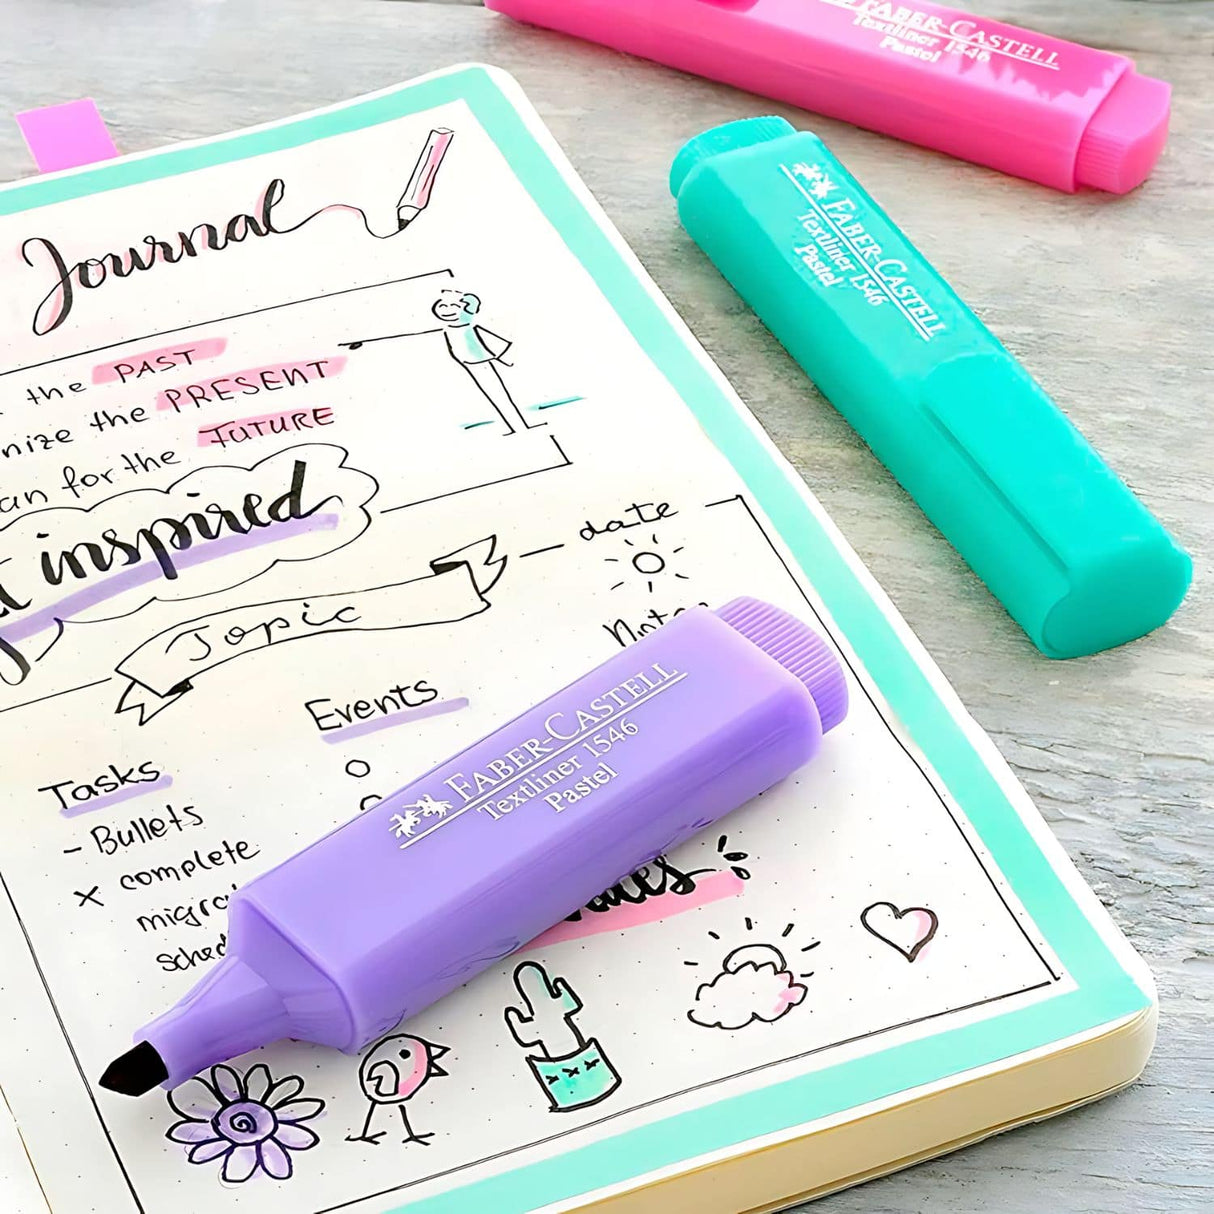 FABER-CASTELL
Textliner 1546
Pastel
FABER-CASTELL
Textliner 1546
Pastel
Journal
the PAST
the PRESENT
for the FUTURE
inspired
date
Topic
Events
Tasks
- Bullets
x complete
FABER-CASTELL
Textliner 1546
Pastel